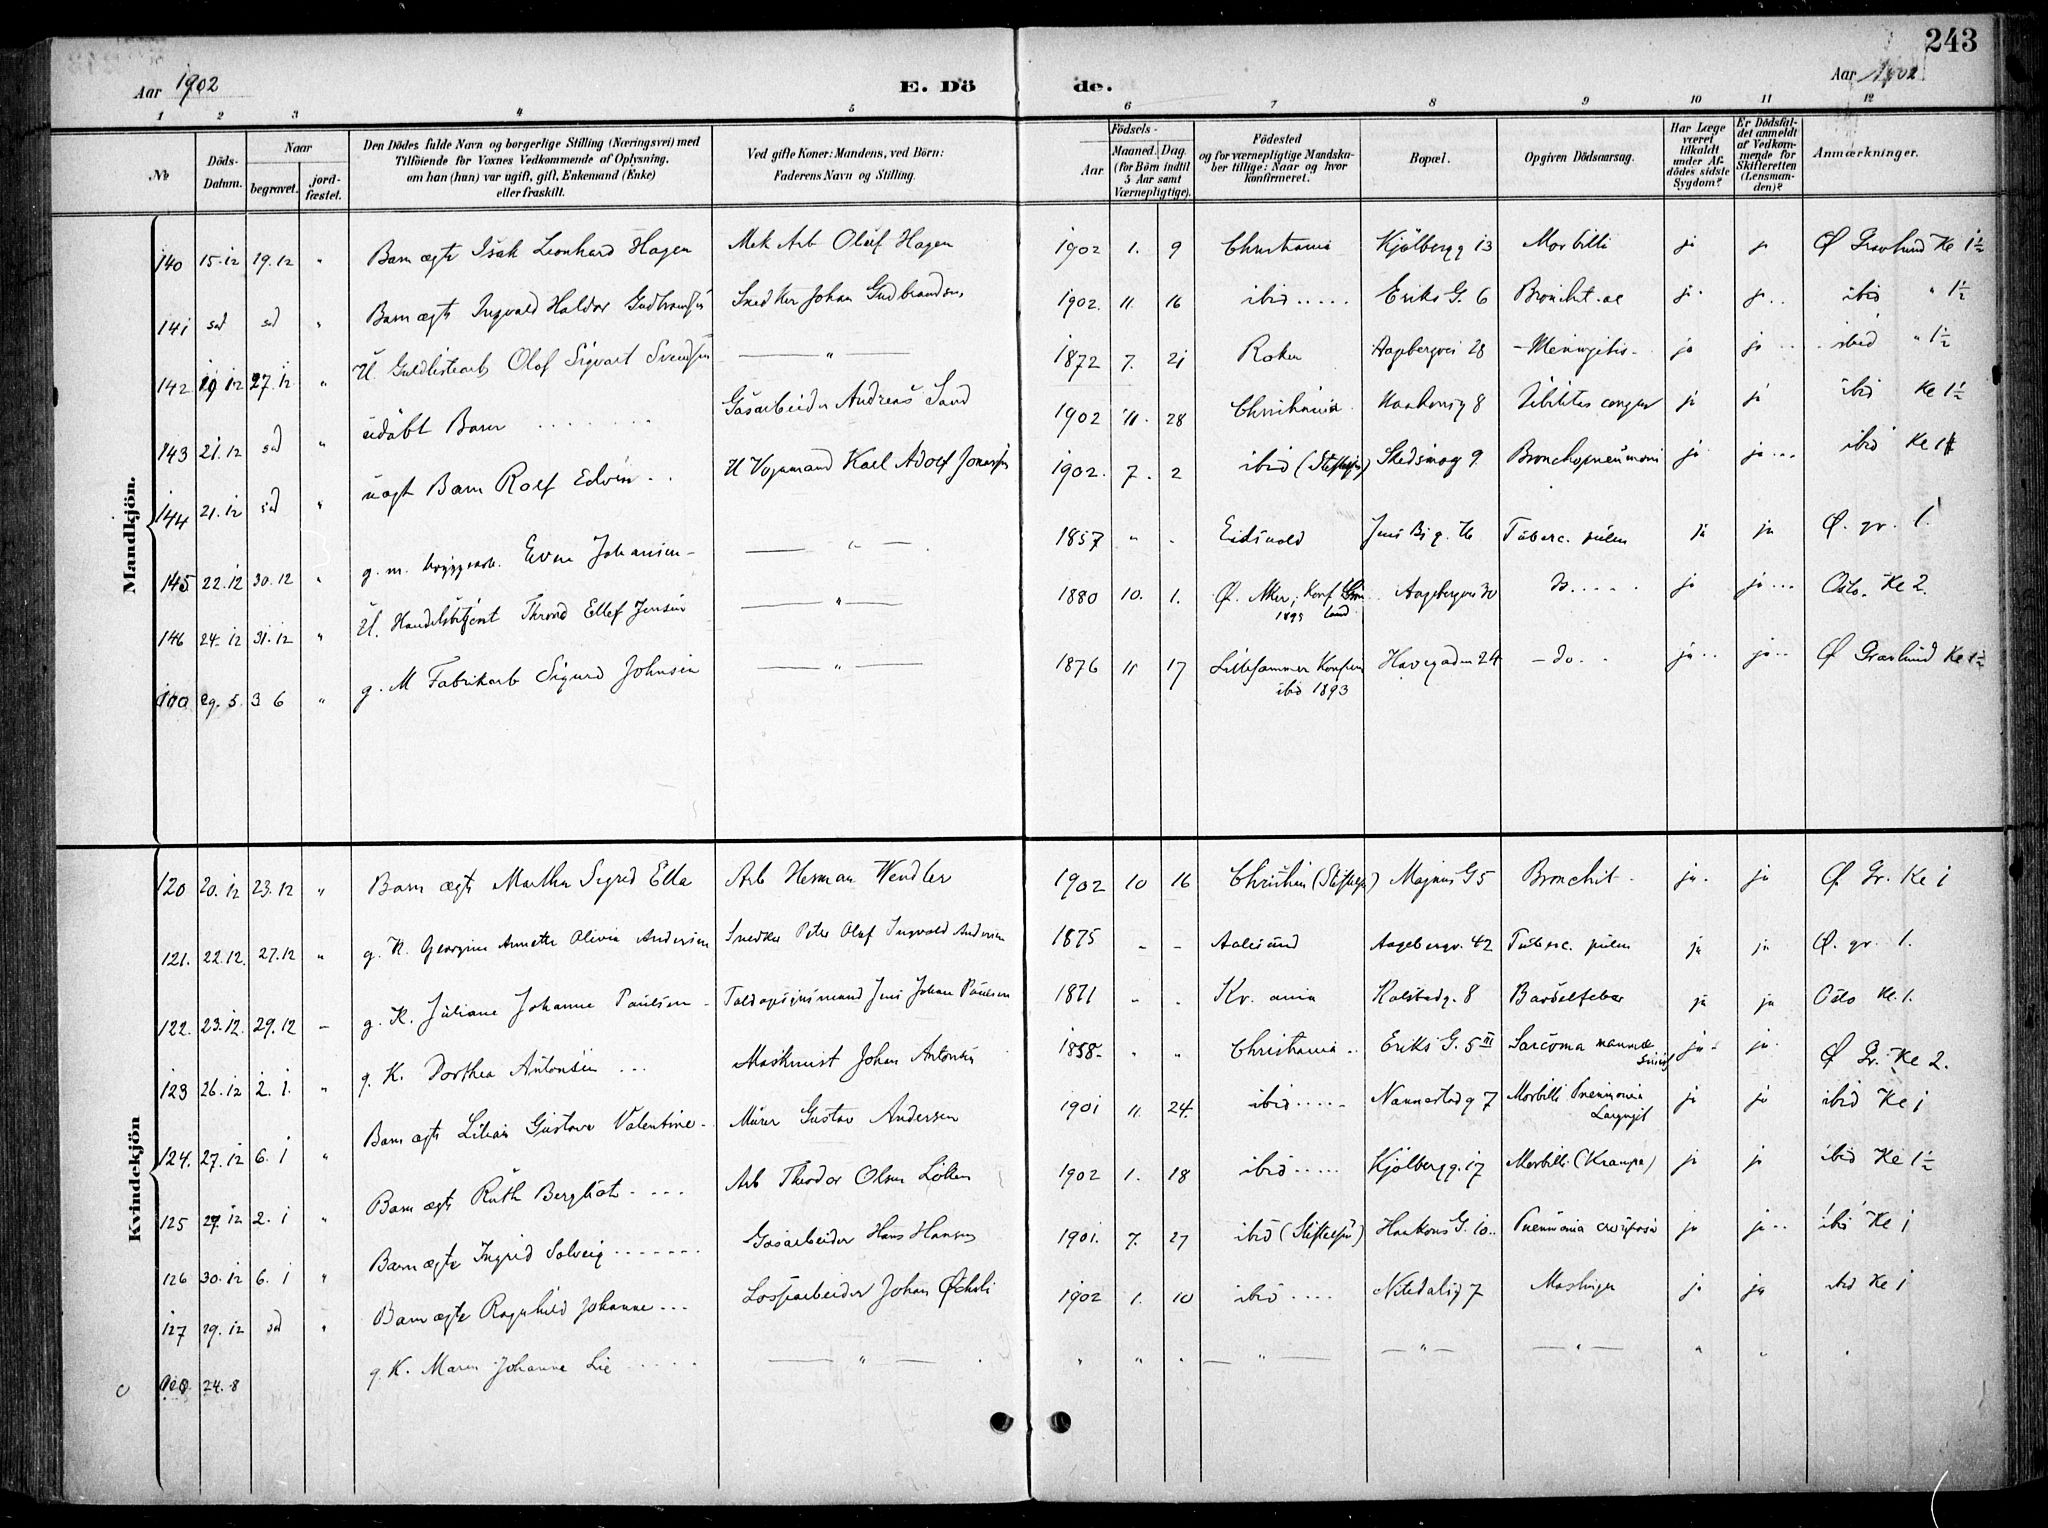 243
Aar 1902
E. Dö
de.
Aar 1902
1 2 3 4 5 6 7 8 9 10 11 12
No
Döds-Datum.
Naar
begravet.
jord-fæstet.
Den Dödes fulde Navn og borgerlige Stilling (Næringsvei) med
Tilföiende for Voxnes Vedkommende af Oplysning,
om han (hun) var ugift, gift, Enkemand (Enke)
eller fraskilt.
Ved gifte Koner: Mandens, ved Börn:
Faderens Navn og Stilling.
Födsels-
Aar.
Maaned.
Dag.
(for Börn indtil
5 Aar samt
Værnepligtige).
Födested
og for værnepligtige Mandska-
ber tillige: Naar og hvor
konfirmeret.
Bopæl.
Opgiven Dödsaarsag.
Har Læge
været
tilkaldt
under Af-
dödes sidste
Sygdom?
Er Dödsfal-
det anmeldt
af Vedkom-
mende for
Skifteretten
(Lensman-
den)?
Anmærkninger.
Mandkjön.
140 15.12 19.12 " Barn ægte Isak Leonhard Hagen Mek Arb Oluf Hagen 1902 1. 9 Christiania Kjölbergg 13 Morbilli ja ja Ø Gravlund Ke 1½
141 sd sd " Barn ægte Ingvald Haldor Gudbrandsen Snedker Johan Gudbrandsen 1902. 11 16 ibid ..... Eriks G. 6 Bronchit. ac ja ja ibid " 1½
142 19 12 27.12 " U. Guldlistearb Olaf Sigvart Svendsen — " — 1872 7. 21 Aagebergvei 28 Meningitis ja ja ibid " 1½
143 21.12 sd " udöbt Barn ........ Gasarbeider Andreas Sand 1902 11. 28 Christiania Haakonsg 8 Debilitas congen ja ja ibid Ke 1½
144 21.12 sd " uægt Barn Rolf Edvin .. U Vognmand Karl Adolf 1902. 7. 2 ibid (Stiftelsen) Skedsmog 9. Bronchopneumoni ja ja ibid Ke 1
145 22.12 30.12 " g. m. bryggearb. Even Johansen — " — 1857 " " Eidsvold Tuberc. pulm ja ja Ø. gr. 1.
146 24.12 31.12 " U. Handelsbetjent Thrond Ellef Jensen — " — 1880 10. 1. Ø. Aker, Konf Grön
1895 land Aagebergvei 30 Do ja ja Oslo. Ke 2.
29. 5 3 6 " g. M Fabrikarb Sigurd Johnsen — " — 1876 11 17 Lillehammer Konfirm
ibid 1893 Havegaden 24 — do — ja ja Ø Gravlund Ke 1½
Kvindekjön
120 20.12 23.12 " Barn ægte Martha Sigrid Ella Arb Herman Wendler 1902 10 16 Christiania (Stiftelsen) Magnus G 5 Bronchit ja ja Ø Gr. Ke 1
121. 22.12. 27.12 " g. K. Georgine Annette Olivia Andersen Snedker Peter Olaf Ingvald Andersen 1875 - - Aalesund Aagebergv. 42 Tuberc. pulm ja ja Ø. gr. 1.
122. 23.12. 29.12 - g. K. Juliane Johanne Paulsen Toldopsynsmand Jens Johan Paulsen 1871 " " Kr. ania Kolstadg. 8 Barselfeber ja ja Oslo Ke. 1.
123 26.12 2. 1. " g. K. Dorthea Antonsen ... Maskinist Johan Antonsen 1858 " " Christiania .. Eriks G. 5 III Sarcoma mammæ
ja ja Ø Gr. Ke 2.
124. 27.12 6. 1 " Barn ægte Lilian Gustava Valentine Murer Gustav Andersen 1901 11. 24. ibid ..... Nannestadg 7 Morbilli Pneumonia
Laryngit ja ja ibid Ke 1
125 27.12 2. 1 " Barn ægte Ruth Bergliot .... Arb Theodor Olsen Löken 1902 1. 18 ibid ..... Kjölbergg. 17 Morbilli (Krampe) ja ja ibid Ke 1½
126 30.12 6. 1 " Barn ægte Ingrid Solveig ....... Gasarbeider Hans Hansen 1901. 7. 27 ibid (Stiftelsen) Haakons G. 10 Pneumonia crouposa ja ja ibi Ke 1
127 29.12 sd " Barn ægte Ragnhild Johanne ... Johan 1902 1. 10 ibid .... Nitedalsg 7 Mæslinger ja ja ibid Ke 1
24. 8 g. K. Maren Johanne Lie ..... — " — " " " — " — — " — — " — " "